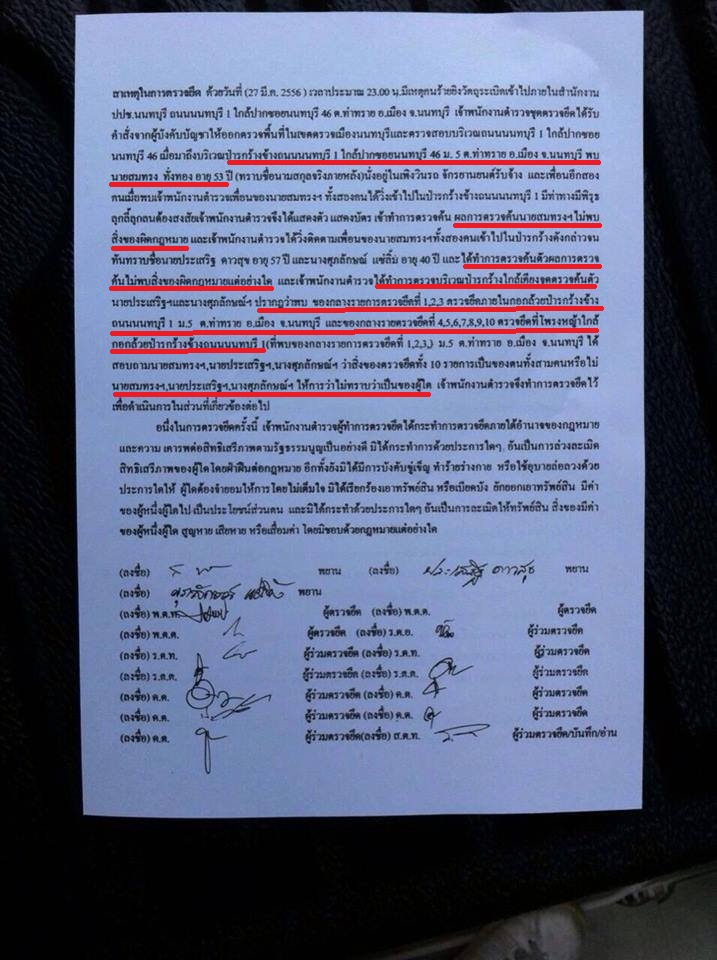 สาเหตุในการตรวจยึด ด้วยวันที่ (27 มี.ค. 2556 ) เวลาประมาณ 23.00 น.มีเหตุคนร้ายยิงวัตถุระเบิดเข้าไปภายในสำนักงาน
ปปช.นนทบุรี ถนนนนทบุรี 1 ใกล้ปากซอยนนทบุรี 46 ต.ท่าทราย อ.เมือง จ.นนทบุรี เจ้าพนักงานตำรวจชุดตรวจยึดได้รับ
คำสั่งจากผู้บังคับบัญชาให้ออกตรวจพื้นที่ในเขตตรวจเมืองนนทบุรีและตรวจสอบบริเวณถนนนนทบุรี 1 ใกล้ปากซอย
นนทบุรี 46 เมื่อมาถึงบริเวณป่ารกร้างข้างถนนนนทบุรี 1 ใกล้ปากซอยนนทบุรี 46 ม. 5 ต.ท่าทราย อ.เมือง จ.นนทบุรี พบ
นายสมทรง ทั่งทอง อายุ 53 ปี (ทราบชื่อนามสกุลจริงภายหลัง)นั่งอยู่ในเพิงวินรถ จักรยานยนต์รับจ้าง และเพื่อนอีกสอง
คนเมื่อพบเจ้าพนักงานตำรวจเพื่อนของนายสมทรงฯ ทั้งสองคนได้วิ่งเข้าไปในป่ารกร้างข้างถนนนนทบุรี 1 มีท่าทางมีพิรุธ
ลุกลี้ลุกลนต้องสงสัยเจ้าพนักงานตำรวจจึงได้แสดงตัว แสดงบัตร เข้าทำการตรวจค้น ผลการตรวจค้นนายสมทรงฯไม่พบ
สิ่งของผิดกฎหมาย และเจ้าพนักงานตำรวจได้วิ่งติดตามเพื่อนของนายสมทรงฯทั้งสองคนเข้าไปในป่ารกร้างดังกล่าวจน
ทันทราบชื่อนายประเสริฐ ดาวสุข อายุ 57 ปี และนางศุภลักษณ์ แซ่ลิ้ม อายุ 40 ปี และได้ทำการตรวจค้นตัวผลการตรวจ
ค้นไม่พบสิ่งของผิดกฎหมายแต่อย่างใด และเจ้าพนักงานตำรวจได้ทำการตรวจบริเวณป่ารกร้างใกล้เคียงจุดตรวจค้นตัว
นายประเสริฐฯและนางศุภลักษณ์ฯ ปรากฏว่าพบ ของกลางรายการตรวจยึดที่ 1,2,3 ตรวจยึดภายในกอกล้วยป่ารกร้างข้าง
ถนนนนทบุรี 1 ม.5 ต.ท่าทราย อ.เมือง จ.นนทบุรี และของกลางรายตรวจยึดที่ 4,5,6,7,8,9,10 ตรวจยึดที่โพรงหญ้าใกล้
กอกล้วยป่ารกร้างข้างถนนนนทบุรี 1(ที่พบของกลางรายการตรวจยึดที่ 1,2,3,) ม.5 ต.ท่าทราย อ.เมือง จ.นนทบุรี ได้
สอบถามนายสมทรงฯ,นายประเสริฐฯ,นางศุภลักษณ์ฯ ว่าสิ่งของตรวจยึดทั้ง 10 รายการเป็นของตนทั้งสามคนหรือไม่
นายสมทรงฯ,นายประเสริฐฯ,นางศุภลักษณ์ฯ ให้การว่าไม่ทราบว่าเป็นของผู้ใด เจ้าพนักงานตำรวจจึงทำการตรวจยึดไว้
เพื่อดำเนินการในส่วนที่เกี่ยวข้องต่อไป
อนึ่งในการตรวจยึดครั้งนี้ เจ้าพนักงานตำรวจผู้ทำการตรวจยึดได้กระทำการตรวจยึดภายใต้อำนาจของกฎหมาย
และความ เคารพต่อสิทธิเสรีภาพตามรัฐธรรมนูญเป็นอย่างดี มิได้กระทำการด้วยประการใดๆ อันเป็นการล่วงละเมิด
สิทธิเสรีภาพของผู้ใดโดยฝ่าฝืนต่อกฎหมาย อีกทั้งยังมิได้มีการบังคับขู่เข็ญ ทำร้ายร่างกาย หรือใช้อุบายล่อลวงด้วย
ประการใดให้ ผู้ใดต้องจำยอมให้การ โดยไม่เต็มใจ มิได้เรียกร้องเอาทรัพย์สิน หรือเบียดบัง ยักยอกเอาทรัพย์สิน มีค่า
ของผู้หนึ่งผู้ใดไป เป็นประโยชน์ส่วนตน และมิได้กระทำด้วยประการใดๆ อันเป็นการละเมิดให้ทรัพย์สิน สิ่งของมีค่า
ของผู้หนึ่งผู้ใด สูญหาย เสียหาย หรือเสื่อมค่า โดยมิชอบด้วยกฎหมายแต่อย่างใด
(ลงชื่อ) พยาน (ลงชื่อ) ประเสริฐ ดาวสุข พยาน
(ลงชื่อ) พยาน
(ลงชื่อ) พ.ต.ท. ผู้ตรวจยึด (ลงชื่อ) พ.ต.ต. ผู้ตรวจยึด
(ลงชื่อ) พ.ต.ต. ผู้ตรวจยึด (ลงชื่อ) ร.ต.อ. ผู้ร่วมตรวจยึด
(ลงชื่อ) ร.ต.ท. ผู้ร่วมตรวจยึด (ลงชื่อ) ร.ต.ต. ผู้ร่วมตรวจยึด
(ลงชื่อ) ร.ต.ต. ผู้ร่วมตรวจยึด (ลงชื่อ) ร.ต.ต. ผู้ร่วมตรวจยึด
(ลงชื่อ) ด.ต. ผู้ร่วมตรวจยึด (ลงชื่อ) ด.ต. ผู้ร่วมตรวจยึด
(ลงชื่อ) ด.ต. ผู้ร่วมตรวจยึด (ลงชื่อ) ด.ต. ผู้ร่วมตรวจยึด
(ลงชื่อ) ด.ต. ผู้ร่วมตรวจยึด(ลงชื่อ) ส.ต.ท. ผู้ร่วมตรวจยึด/บันทึก/อ่าน